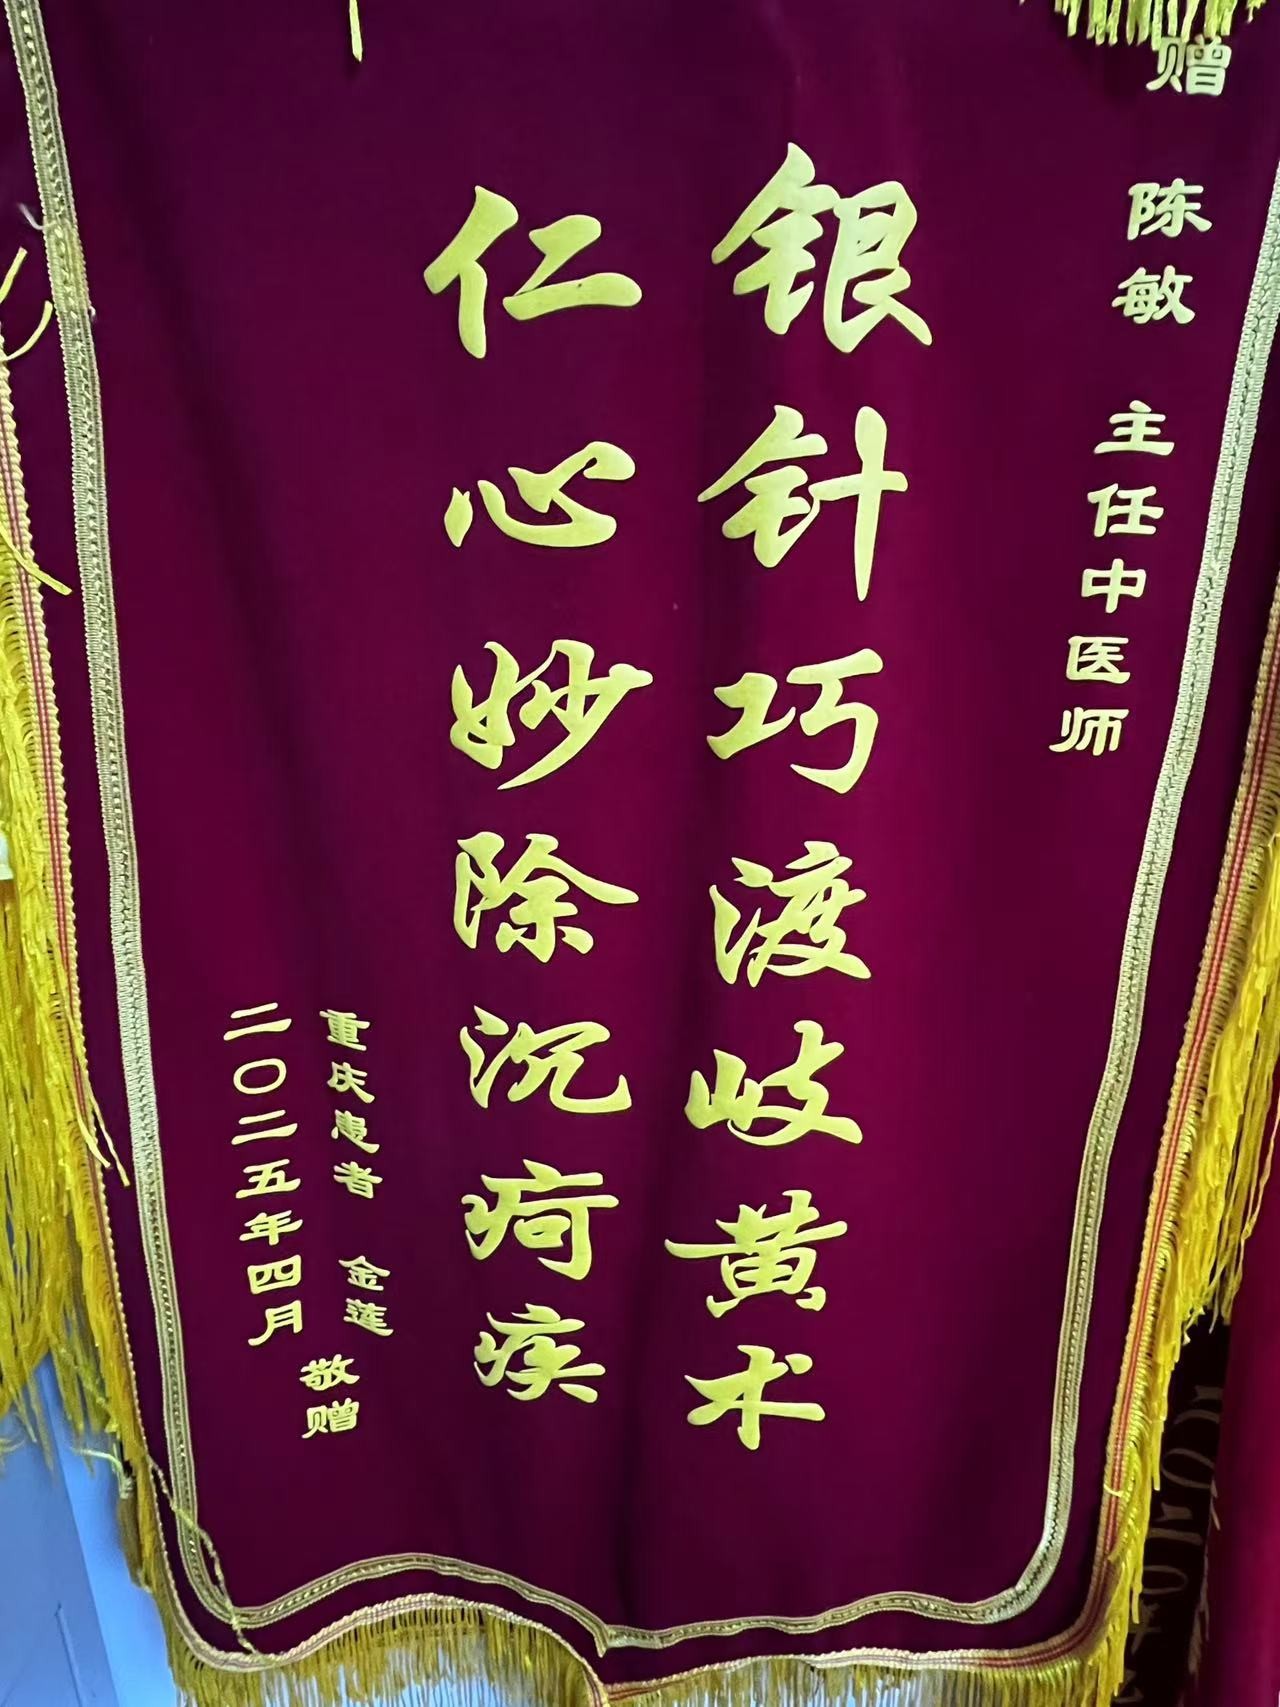 赠 陈敏 主任中医师
银针巧渡岐黄术
仁心妙除沉疴疾
重庆患者 金莲 敬赠
二〇二五年四月